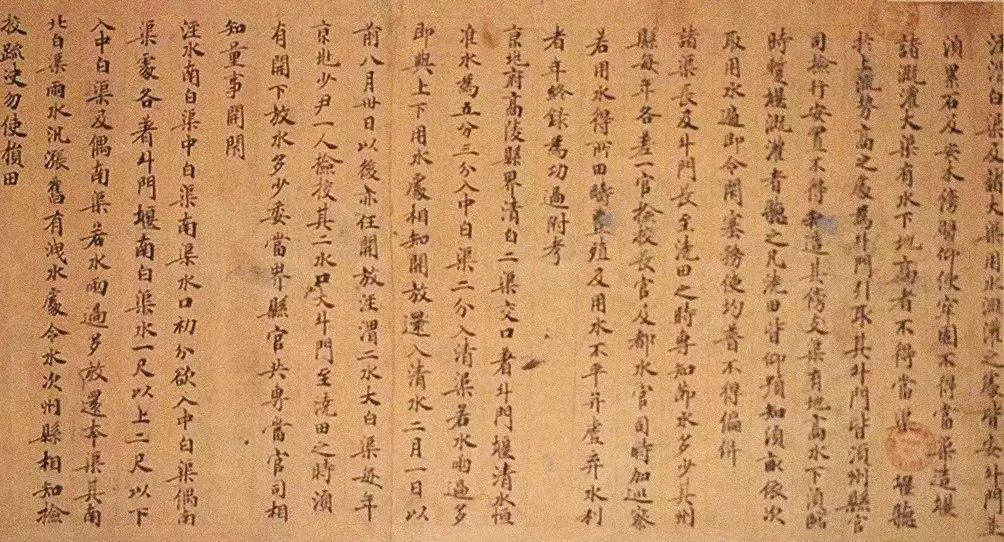 涇渭白渠及諸大渠用水溉灌之處皆安斗門並
須累石及安木傍壁仰使牢固不得當渠造堰
諸溉灌大渠有水下地高者不得當渠堰聽
於上流勢高之處為斗門引取其斗門皆須州縣官
司檢行安置不得私造其傍支渠有地高水下須臨
時蹔堰溉灌者聽之凡澆田皆仰預知頃畝依次
取用水遍即令閉塞務使均普不得偏併
諸渠長及斗門長至澆田之時專知節水多少其州
縣每年各差一官檢校長官及都水官司時加巡察
若用水得所田疇豐殖及用水不平并虛棄水利
者年終錄為功過附考
京兆府高陵縣界清白二渠交口著斗門堰清水恒
准水為五分三分入中白渠二分入清渠若水雨過多
即與上下用水處相知開放還入清水二月一日以
前八月卅日以後亦任開放涇渭二水大白渠每年
京兆少尹一人檢校其二水口大斗門至澆田之時須
有開下放水多少委當界縣官共專當官司相
知量事開閉
涇水南白渠中白渠南渠水口初分欲入中白渠偶南
渠處各著斗門堰南白渠水一尺以上二尺以下
入中白渠及偶南渠若水雨過多放還本渠其南
北白渠雨水汎漲舊有洩水處令水次州縣相知檢
校疏決勿使損田